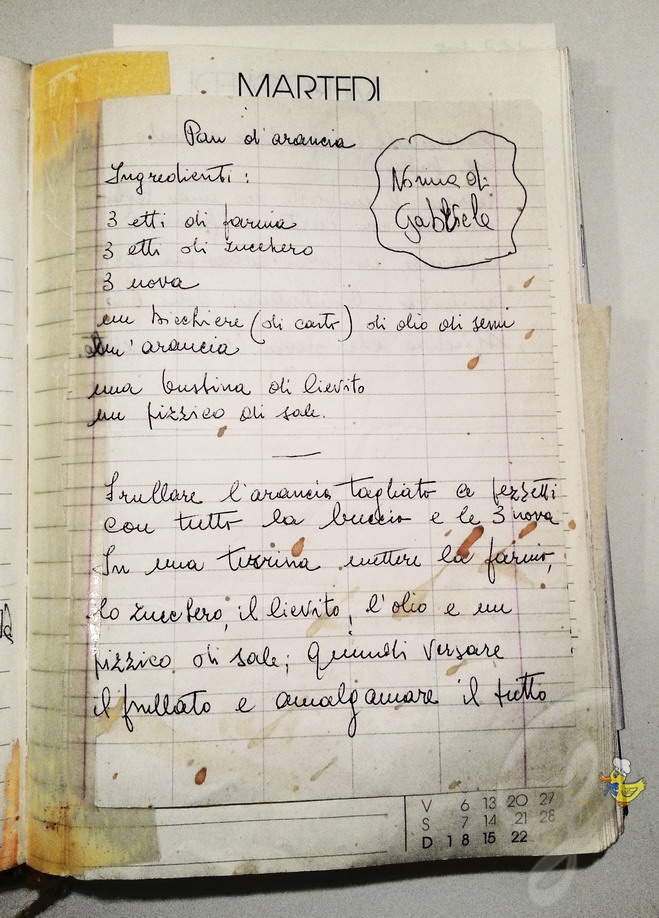 MARTEDI
Pan d'arancia
Nonna di
Gabriele
Ingredienti:
3 etti di farina
3 etti di zucchero
3 uova
un bicchiere (di carta) di olio di semi
un'arancia
una bustina di lievito
un pizzico di sale.
Frullare l'arancia tagliata a pezzetti
con tutta la buccia e le 3 uova
In una terrina mettere la farina,
lo zucchero, il lievito, l'olio e un
pizzico di sale; Quindi versare
il frullato e amalgamare il tutto
V 6 13 20 27
S 7 14 21 28
D 1 8 15 22